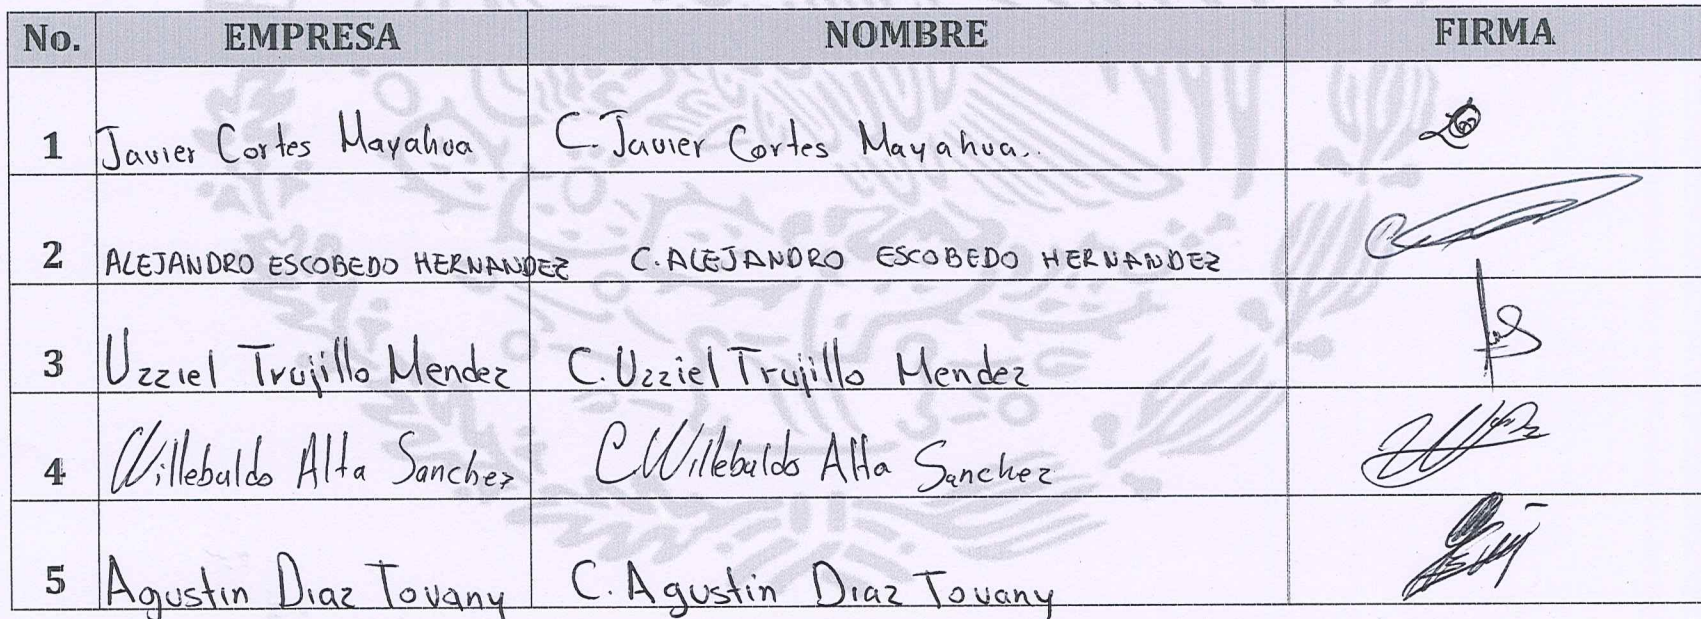 No. EMPRESA NOMBRE FIRMA
1 Javier Cortes Mayahua C. Javier Cortes Mayahua..
2 ALEJANDRO ESCOBEDO HERNANDEZ C. ALEJANDRO ESCOBEDO HERNANDEZ
3 Uzziel Trujillo Mendez C. Uzziel Trujillo Mendez
4 Willebaldo Alta Sanchez C Willebaldo Alta Sanchez
5 Agustin Diaz Tovany C. Agustin Diaz Tovany